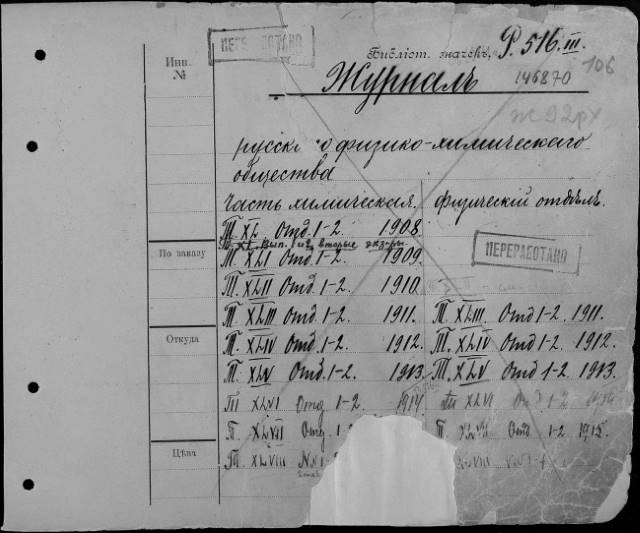 ПЕРЕРАБОТАНО
Инв.
№
Библіот. значекъ, Р. 516 III.
106
Журналъ 146870
Ж 92рх
русск о физико-химическаго
общества
Часть химическая. физический отдѣлъ.
Т. XL Отд. 1-2 1908
Т. XL вып. 1 и 2 вторые экз-ры.
По заказу
Т. XLI Отд. 1-2. 1909.
ПЕРЕРАБОТАНО
Т. XLII Отд. 1-2. 1910.
Т. XLIII Отд. 1-2. 1911. Т. XLIII. Отд 1-2. 1911.
Откуда
Т. XLIV Отд. 1-2. 1912. Т. XLIV Отд 1-2. 1912.
Т. XLV Отд. 1-2. 1913. Т. XLV Отд 1-2. 1913.
Т XLVI Отд. 1-2. 1914. Т XLVI Отд 1-2 1914
Т. XLVII Отд. 1-2 Т. XLVII Отд 1-2 1915.
Цѣна
Т. XLVIII №№ 1- XLVIII №№ 1-